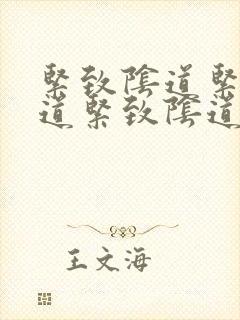 緊致陰道緊
道緊致陰道
王文海